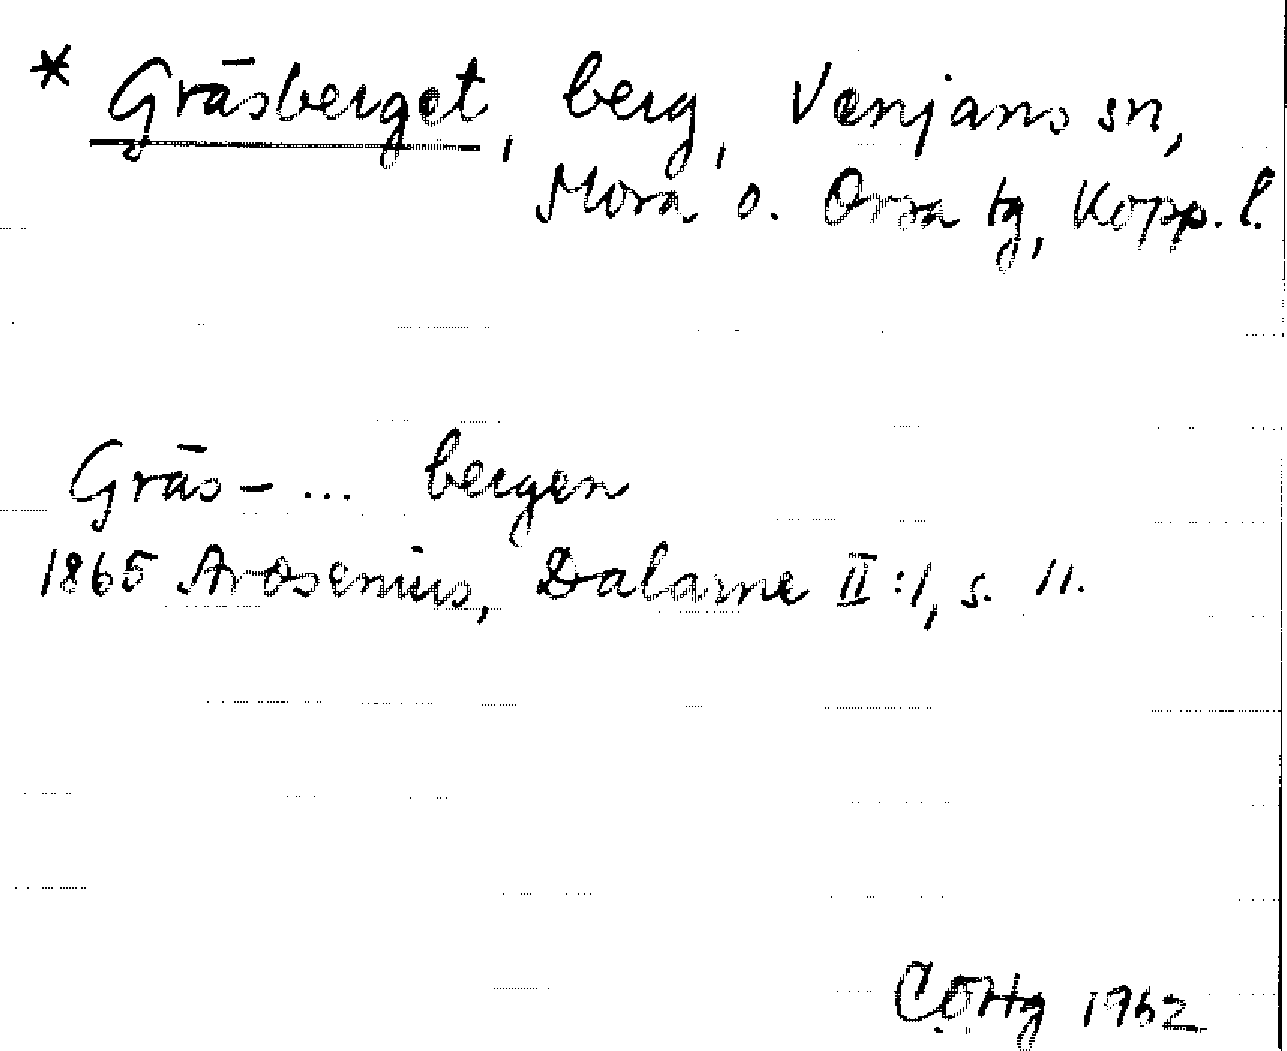 * Gräsberget, berg, Venjans sn,
Mora o. Orsa tg, Kopp. l.
Gräs- ... bergen
1865 Arosenius, Dalarne II:1, s. 11.
1962